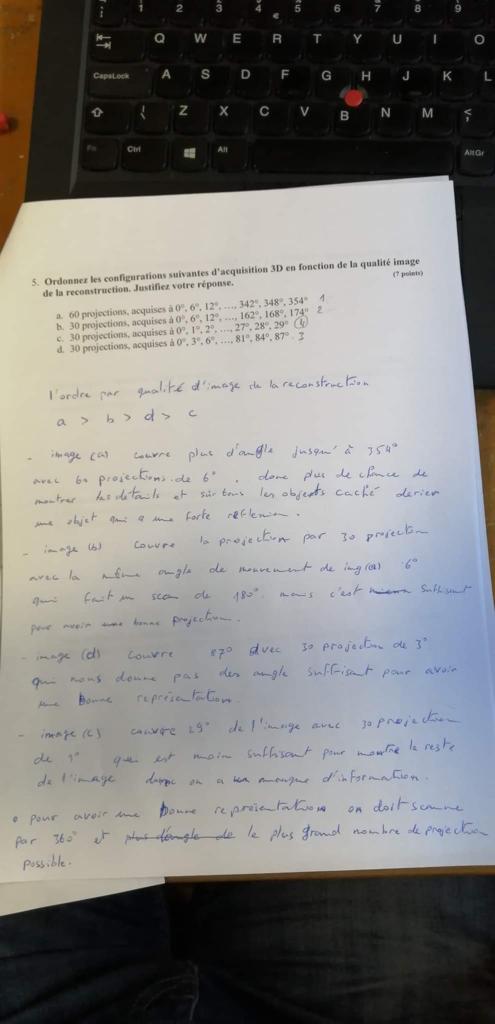 1 2 3 4 5 6 7 8 9
€
Q W E R T Y U I O
CapsLock A S D F G H J K L
Z X C V B N M
Fn Ctrl Alt AltGr
5. Ordonnez les configurations suivantes d'acquisition 3D en fonction de la qualité image
de la reconstruction. Justifiez votre réponse. (7 points)
a. 60 projections, acquises à 0°, 6°, 12°, ..., 342°, 348°, 354° 1
b. 30 projections, acquises à 0°, 6°, 12°, ..., 162°, 168°, 174° 2
c. 30 projections, acquises à 0°, 1°, 2°, ..., 27°, 28°, 29° 4
d. 30 projections, acquises à 0°, 3°, 6°, ..., 81°, 84°, 87° 3
l'ordre par qualité d'image de la reconstruction
a > b > d > c
- image (a) couvre plus d'angle jusqu'à 354°
avec 60 projections de 6°. donc plus de chance de
montrer les détails et surtous les objects caché derier
une objet qui a une forte reflexion.
- image (b) couvre la projection par 30 projection
avec la même angle de mouvement de img(a) 6°
qui fait un scan de 180°. mais c'est suffisant
pour avoir une bonne projection.
- image (d) couvre 87° avec 30 projection de 3°
qui nous donne pas des angle suffisant pour avoir
une bonne représentation.
- image (c) couvre 29° de l'image avec 30 projection
de 1° qui est moin suffisant pour montre le reste
de l'image donc on a manque d'information.
• pour avoir une bonne représentation on doit scanne
par 360° et plus d'angle de le plus grand nombre de projection
possible.